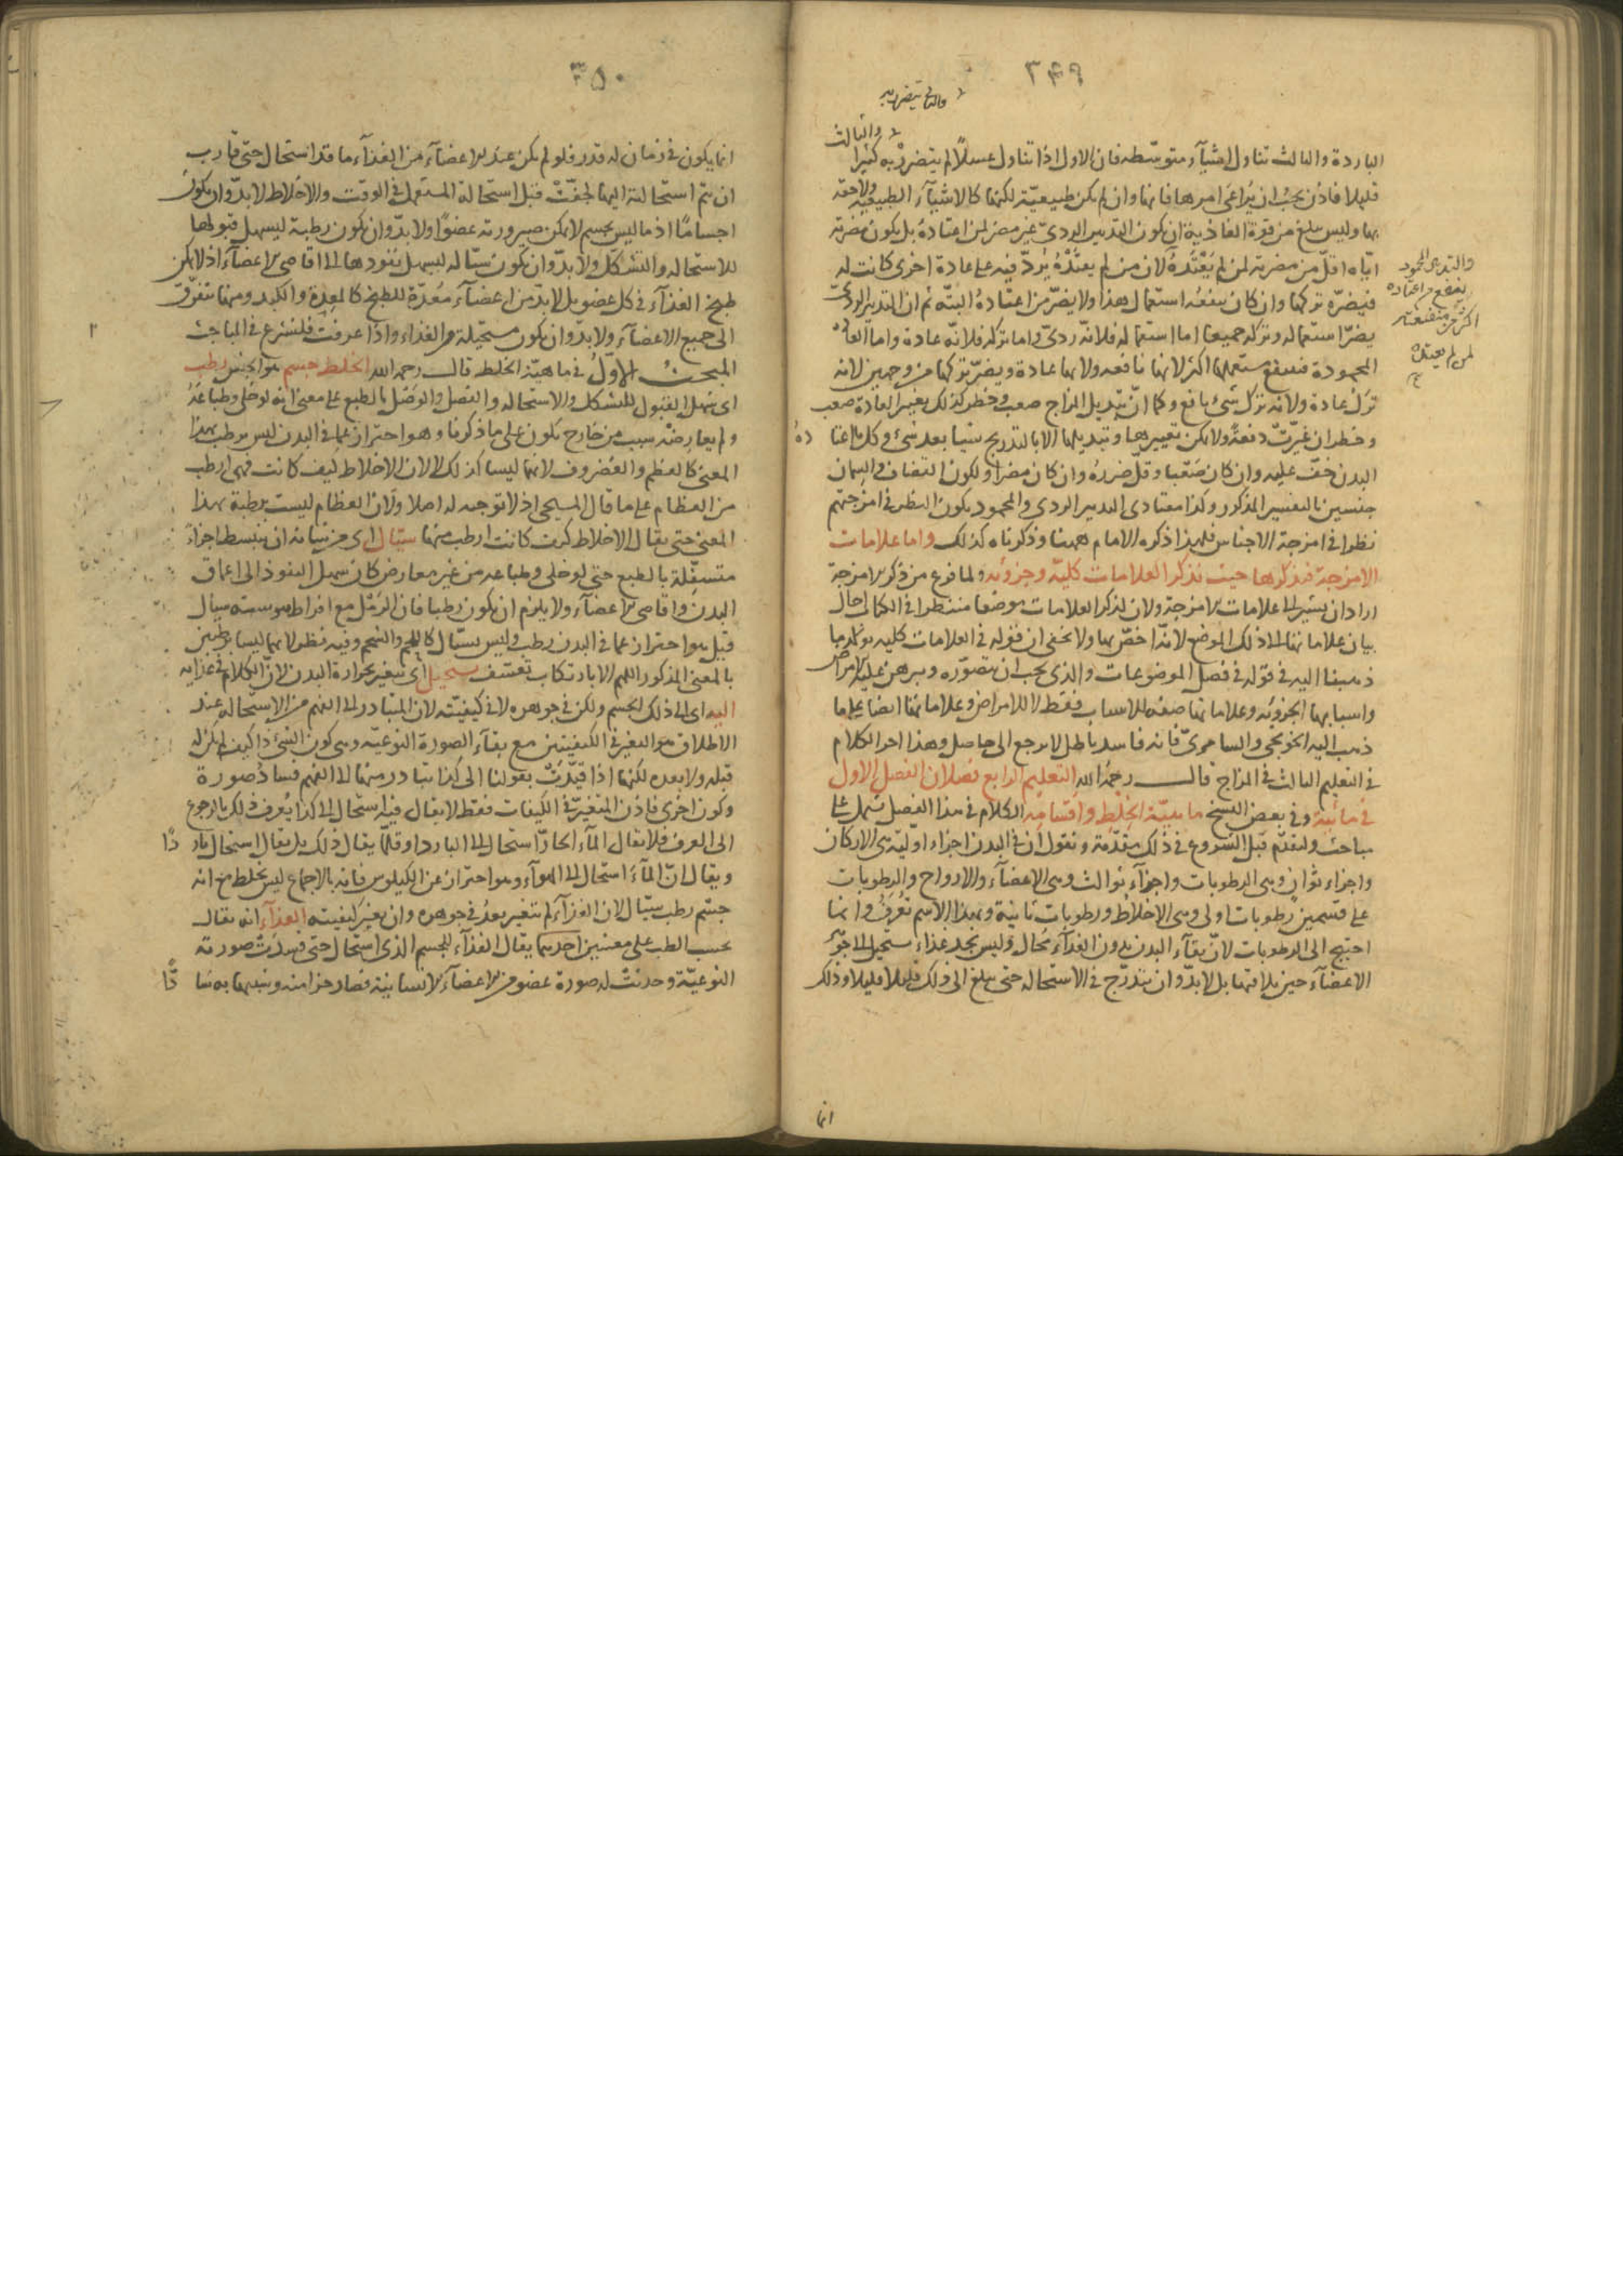 ٣٤٩
والثالث يتضرر به
والثالث
الباردة والثالث تناول اشياء متوسطه فان الاول اذا تناول عسلًا لم يتضرر به كثيرا
قليلا فاذن يجب ان يراعى امرها فانها وان لم يكن طبيعيّة لكنها كالاشيآء الطبيعيّة ولاحقة
بها وليس يبلغ من قوة العادة ان يكون التدبير الردىّ غير مضر لمن اعتاده بل يكون مضرته
ايّاه اقلّ من مضرته لمن لم يَعْتَدْهُ لان من لم يعتَدْهُ يُردّ فيه على عادة اخرى كانت له
فيضرّه تركها وان كان ينفعه استعمال هذا ولا يضرّ من اعتاده البتّه ثم ان التدبير الردىّ
يضرّ استعماله وتركه جميعا اما استعماله فلانّه ردىّ واما تركه فلانّه عادة واما العادة
المحمودة فينفع مستعملها اكثر لانها نافعه ولانها عادة ويضرّ تركها من وجهين لانه
ترك عادة ولانه ترك شىء نافع وكما انّ تبديل المزاج صعب وخطر كذلك تغيير العادة صعب
وخطر ان غيّرتْ دفعةً ولا يمكن تغييرها وتبديلها الا بالتدريج شيئا بعد شىء وكل ما اعتاده
البدن خفّ عليه وان كان صَعْبا وقلّ ضرره وان كان مضرا ولكون القضاف والسمان
جنسين بالتفسير المذكور وكذا معتادى التدبير الردى والمحمود يكون النظر فى امزجتهم
نظرا فى امزجة الاجناس فلهذا ذكره الامام ههنا وذكرناه كذلك واما علامات
الامزجة فنذكرها حيث نذكر العلامات كليّة وجزوئه ولما فرغ من ذكر الامزجة
اراد ان يشير الى علامات الامزجة ولان لذكر العلامات موضعا منتظرا فى الكتاب احال
بيان علاماتها الى ذلك الموضع لانّه اخصّ بها ولا يخفى ان قوله فى العلامات كليه يؤكد ما
ذهبنا اليه فى قوله فى فصل الموضوعات والذى يجب ان يتصوّره ويبرهن عليه الامراض
واسبابها الجزوئه وعلاماتها صفه للاسباب فقط لا للامراض وعلاماتها ايضا على ما
ذهب اليه الخونجى والسامرىّ فانه فاسد باطل لا يرجع الى حاصل وهذا اخر الكلام
فى التعليم الثالث فى المزاج قال رحمهُ الله التعليم الرابع فصلان الفصل الاول
فى مائية وفى بعض النسخ ماهيّة الخلط واقسامه الكلام فى هذا الفصل يشمل على
مباحث ولنقدّم قبل الشروع فى ذلك مقدّمة ونقول ان فى البدن اجزاء اوليّة هى الاركان
واجزاء ثوانٍ وهى الرطوبات واجزآء ثوالث وهى الاعضآء والارواح والرطوبات
على قسمين رطوبات اولى وهى الاخلاط ورطوبات ثانية وبهذا الاسم تُعرَفُ وانما
احتيج الى الرطوبات لانّ بقآء البدن بدون الغذآء مُحال وليس يجد غذاء يستحيل الى جوهر
الاعضآء حين يلاقيها بل لابدّ وان يتدرّج فى الاستحاله حتى يبلغ الى ذلك قليلا قليلا وذلك
والتدبير المحمود
ينفع من اعتاده
اكثر من منفعته
لمن لم يعتده
انما
٣٥٠
انما يكون فى زمان له قدر فلو لم يكن عند الاعضآء من الغذآء ما قد استحال حتى قارب
ان يتم استحالته اليها لجفّتْ قبل استحالة المستعمل فى الوقت والاخلاط لابدّ وان يكون
اجسامًا اذ ما ليس بجسم لا يمكن صيرورته عضوًا ولابدّ وان يكون رطبة ليسهل قبولها
للاستحاله والتشكّل ولابدّ وان يكون سيّاله ليسهل نفوذها الى اقاصى الاعضآء اذ لا يمكن
طبخ الغذآء فى كل عضو بل لابدّ من اعضآء مُعدّة للطبخ كالمعدة والكبد ومنها يتفرّق
الى جميع الاعضآء ولابدّ وان يكون مستحيلة من الغذاء واذا عرفت فلنشرع فى المباحث
المبحث الاوّل فى ماهيّة الخلط قال رحمه الله الخلط جسم هو الجنس رطب
اى سهل القبول للتشكل والاستحاله والفصل والوصل بالطبع على معنى انه لو خلى وطباعَهُ
ولم يعارضْه سبب من خارج يكون على ما ذكرنا وهو احتراز عما فى البدن ليس برطب بهذا
المعنى كالعظم والغضروف لانهما ليسا كذلك لا لان الاخلاط كيف كانت فهى ارطب
من العظام على ما قال المسيحى اذ لا توجيه له اصلا ولان العظام ليست برطبة بهذا
المعنى حتى يقال الاخلاط كيف كانت ارطب منها سيّال اى من شانه ان ينبسط اجزاءً
متسفّلة بالطبع حتى لو خلى وطباعه من غير معارض كان سهل النفوذ الى اعماق
البدن واقاصى الاعضآء ولا يلزم ان يكون رطبا فان الرمل مع افراط يبوسته سيال
قيل هو احتراز عما فى البدن رطب وليس بسيّال كاللحم والشحم وفيه نظر لانهما ليسا برطبين
بالمعنى المذكور اللهم الا بارتكاب تعسّف يستحيل اى يتغير بحرارة البدن لانّ الكلام فى غذائه
اليه اى الى ذلك الجسم ولكن فى جوهره لا فى كيفيّته لان المتبادر الى الفهم من الاستحاله عند
الاطلاق هو التغير فى الكيفيتين مع بقآء الصورة النوعيّه وهى كون الشىء ذا كيف لم يكن له
قبله ولا بعده لكنها اذا قيّدتْ بقولنا الى كذا يتبادر منها الى الفهم فساد صورة
وكون اخرى فاذن المتغيّر فى الكيفيات فقط لا يقال فيه استحال الى كذا يُعرف ذلك بالرجوع
الى العرف فلا يقال المآء الحارّ استحال الى البارد او قلّما يقال ذلك بل يقال استحال باردًا
ويقال انّ المآء استحال الى الهوآء وهو احتراز عن الكيلوس فانه بالاجماع ليس بخلط مع انه
جسم رطب سيّال لان الغذآء لم يتغير بعدُ فى جوهره وان يغير كيفيته الغذآء انه يقال
بحسب الطب على معنيين احدهما يقال الغذآء للجسم الذى استحال حتى فسدتْ صورته
النوعيّة وحدثتْ له صورة عضو من الاعضآء الانسانية فصار جزا منه وشبيها به سادًّا